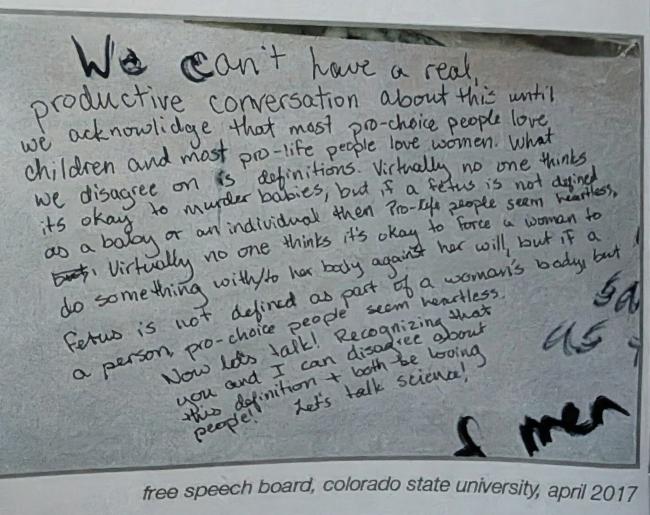 We can't have a real,
productive conversation about this until
we acknowlidge that most pro-choice people love
children and most pro-life people love women. What
we disagree on is definitions. Virtually no one thinks
its okay to murder babies, but if a fetus is not defined
as a baby or an individual then Pro-life people seem heartless.
Virtually no one thinks it's okay to force a woman to
do something with/to her body against her will, but if a
fetus is not defined as part of a woman's body, but
a person, pro-choice people seem heartless.
Now lets talk! Recognizing that
you and I can disagree about
this definition + both be loving
people! Let's talk science!
as
men
free speech board, colorado state university, april 2017